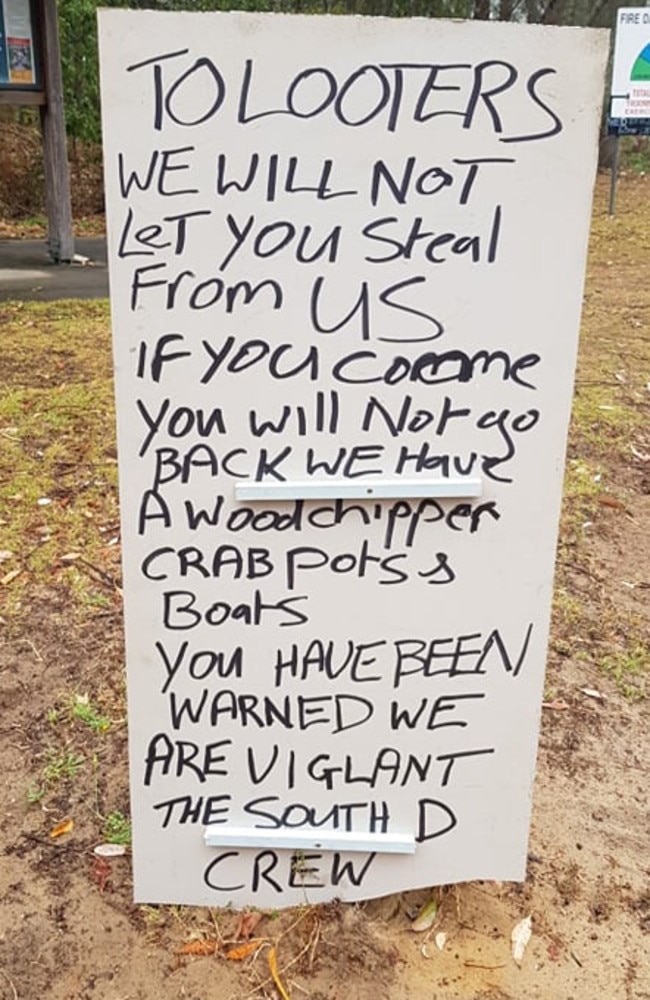 TO LOOTERS
WE WILL NOT
LeT YOU Steal
From US
IF YOU come
You will Not go
BACK WE Have
A Woodchipper
CRAB pots &
Boats
YOU HAVE BEEN
WARNED WE
ARE VIGLANT
THE SOUTH D
CREW
FIRE D